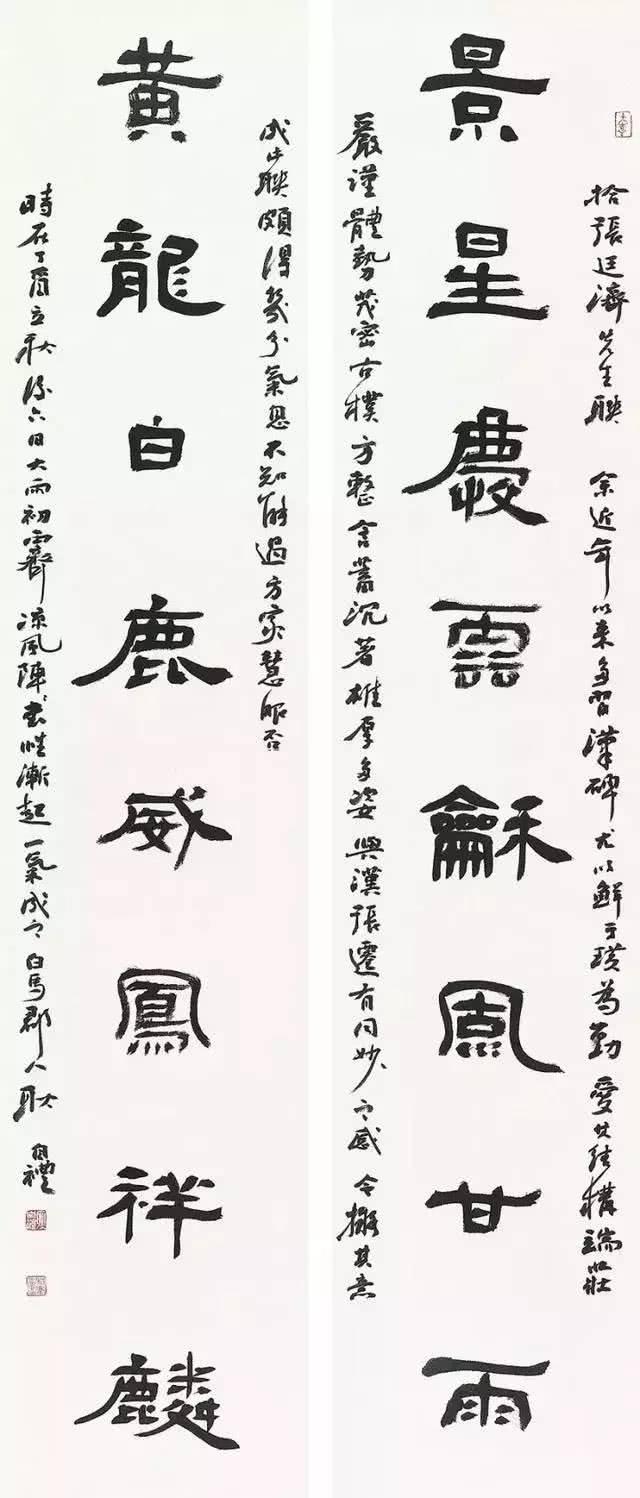 拾張廷濟先生聯 余近年以来多習漢碑尤以鮮于璜為勤愛其结構端莊
景星慶雲龢風甘雨
嚴謹體勢茂密古樸方整含蓄沉著雄厚多姿與漢張遷有同妙之感今擬其意
成此聯頗得幾分氣息不知能過方家慧眼否
黃龍白鹿威鳳祥麟
時在丁酉立秋後六日大雨初霽凉風陣陣書性漸起一氣成之白馬郡人耿自禮